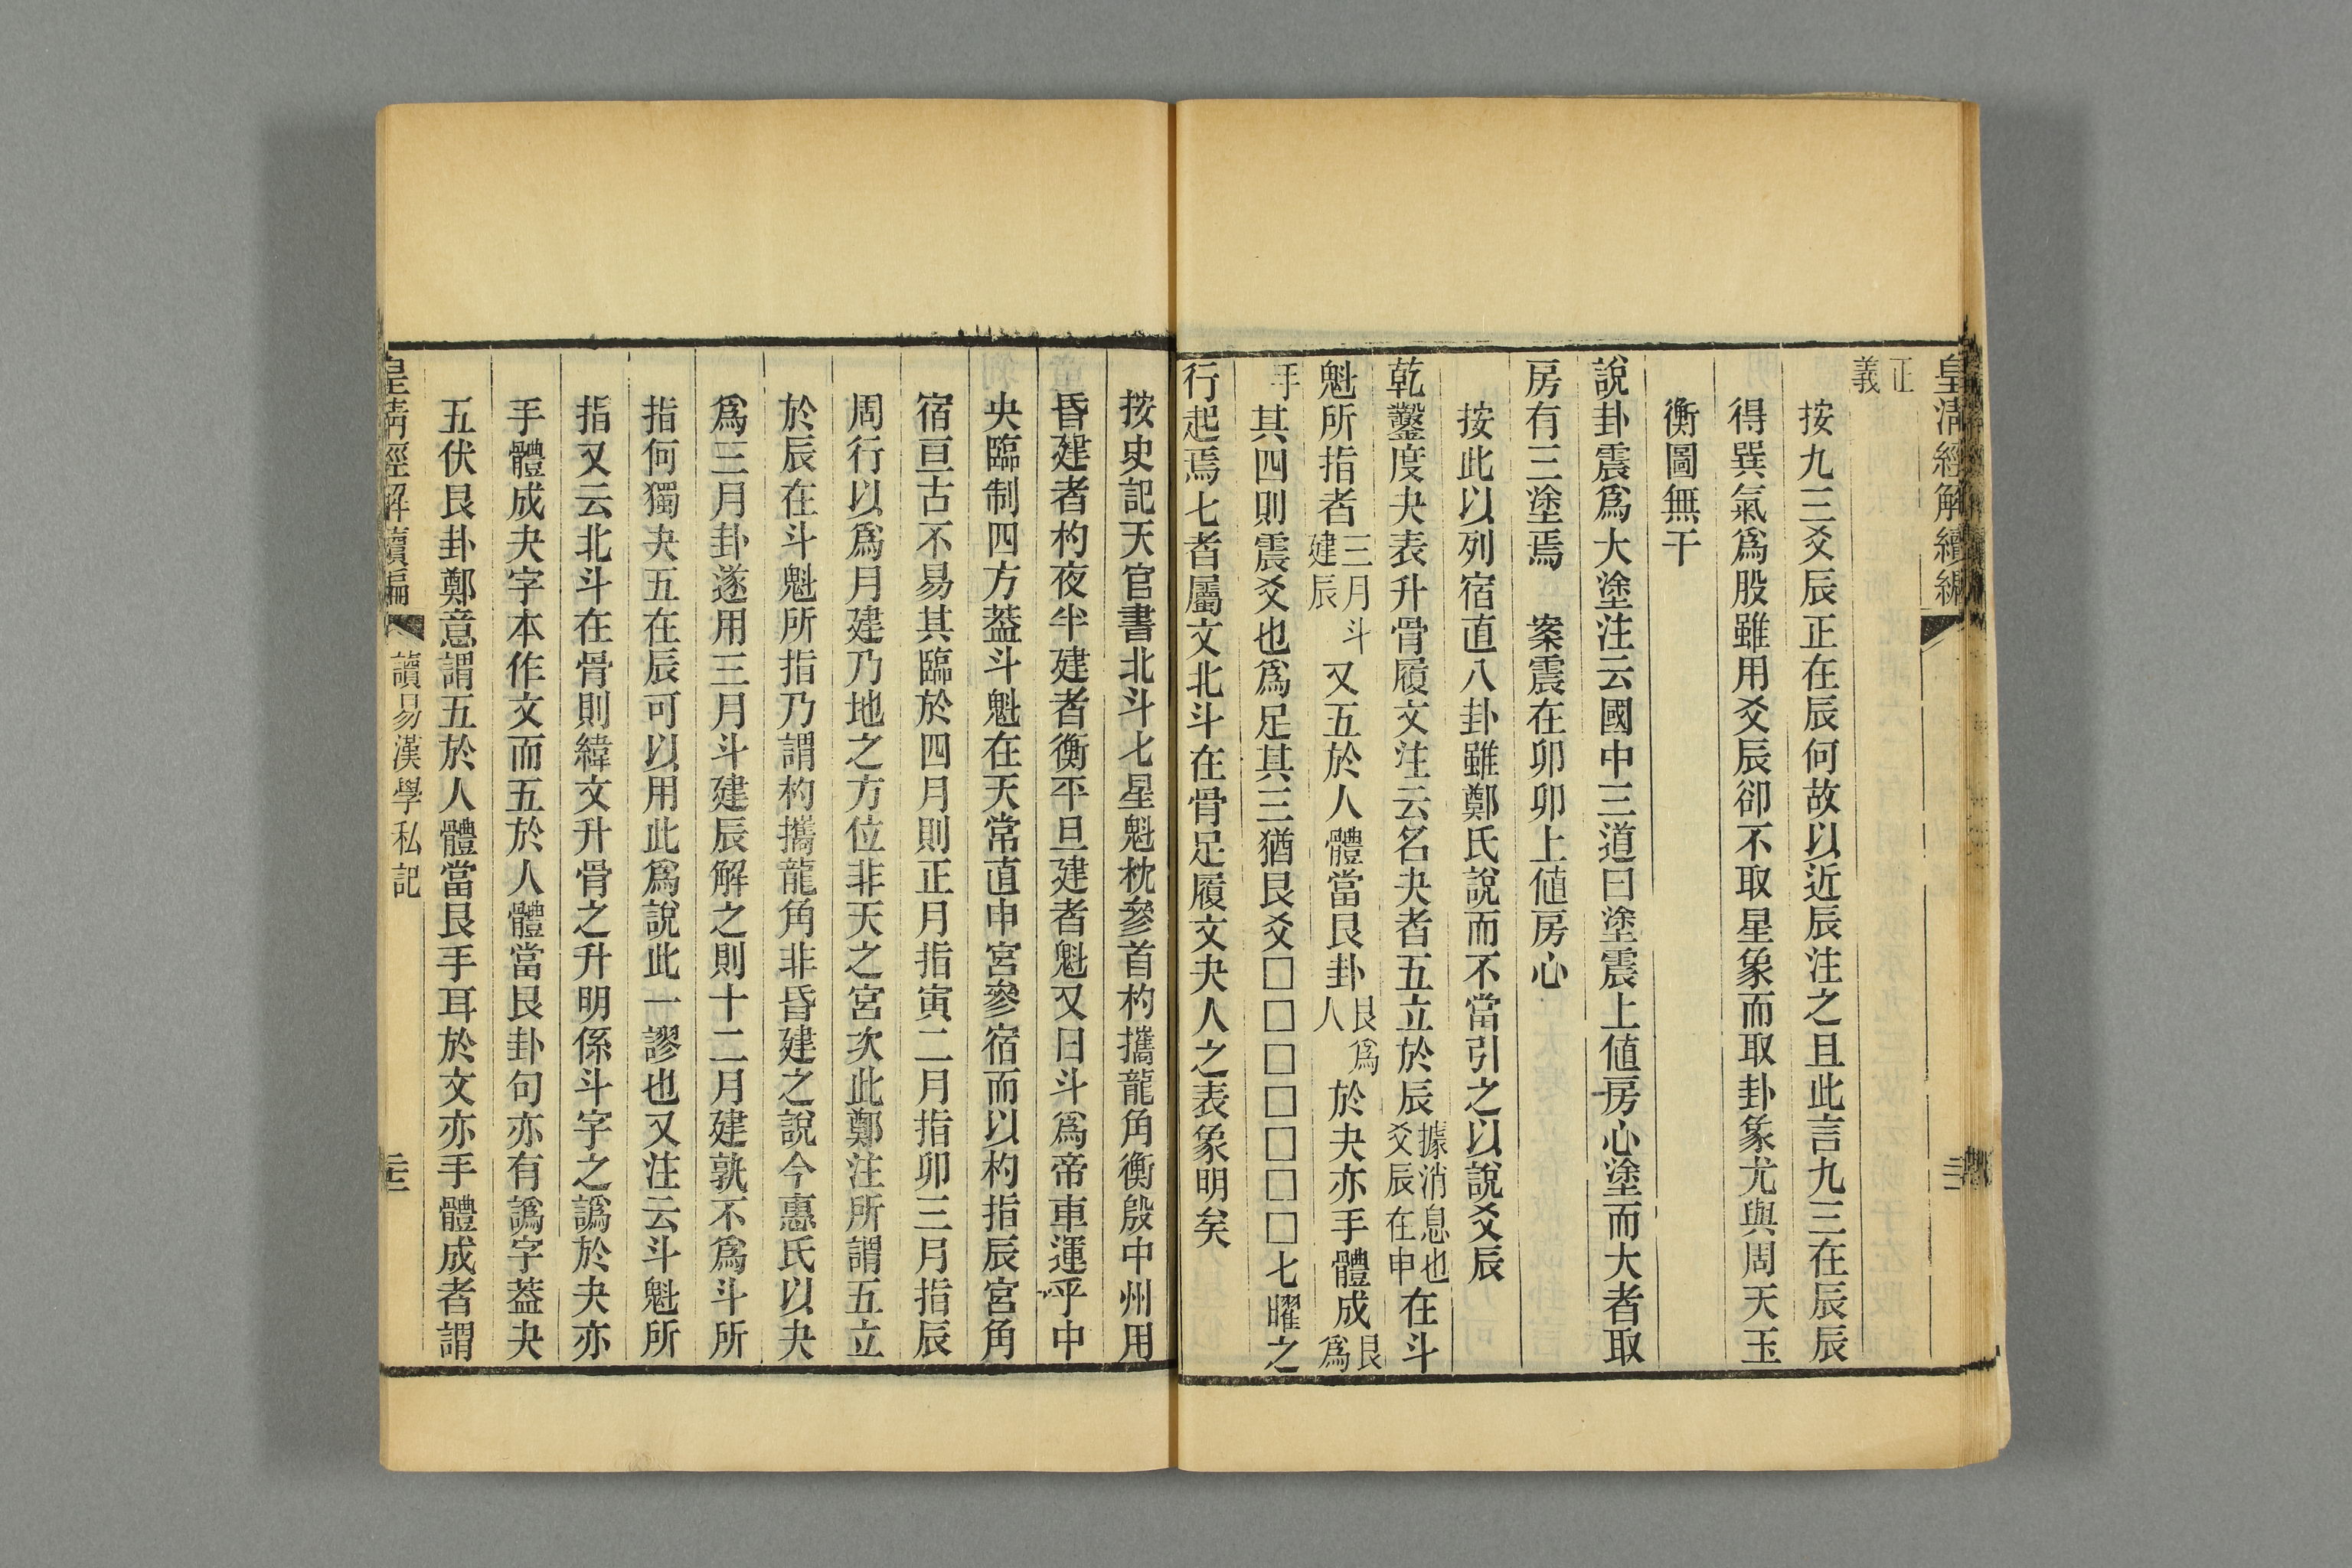 皇清經解續編
正義
按九三爻辰正在辰何故以近辰注之且此言九三在辰辰
得巽氣爲股雖用爻辰卻不取星象而取卦象尤與周天玉
衡圖無干
說卦震爲大塗注云國中三道曰塗震上値房心塗而大者取
房有三塗焉　案震在卯卯上値房心
按此以列宿直八卦雖鄭氏說而不當引之以說爻辰
乾鑿度夬表升骨履文注云名夬者五立於辰據消息也爻辰在申在斗
魁所指者三月斗建辰又五於人體當艮卦艮爲人於夬亦手體成艮爲
手其四則震爻也爲足其三猶艮爻□□□□□□□七曜之
行起焉七者屬文北斗在骨足履文夬人之表象明矣
按史記天官書北斗七星魁枕參首杓攜龍角衡殷中州用
昏建者杓夜半建者衡平旦建者魁又曰斗爲帝車運乎中
央臨制四方葢斗魁在天常直申宮參宿而以杓指辰宮角
宿亘古不易其臨於四月則正月指寅二月指卯三月指辰
周行以爲月建乃地之方位非天之宮次此鄭注所謂五立
於辰在斗魁所指乃謂杓攜龍角非昏建之說今惠氏以夬
爲三月卦遂用三月斗建辰解之則十二月建孰不爲斗所
指何獨夬五在辰可以用此爲說此一謬也又注云斗魁所
指又云北斗在骨則緯文升骨之升明係斗字之譌於夬亦
手體成夬字本作文而五於人體當艮卦句亦有譌字葢夬
五伏艮卦鄭意謂五於人體當艮手耳於文亦手體成者謂
皇清經解續編　讀易漢學私記